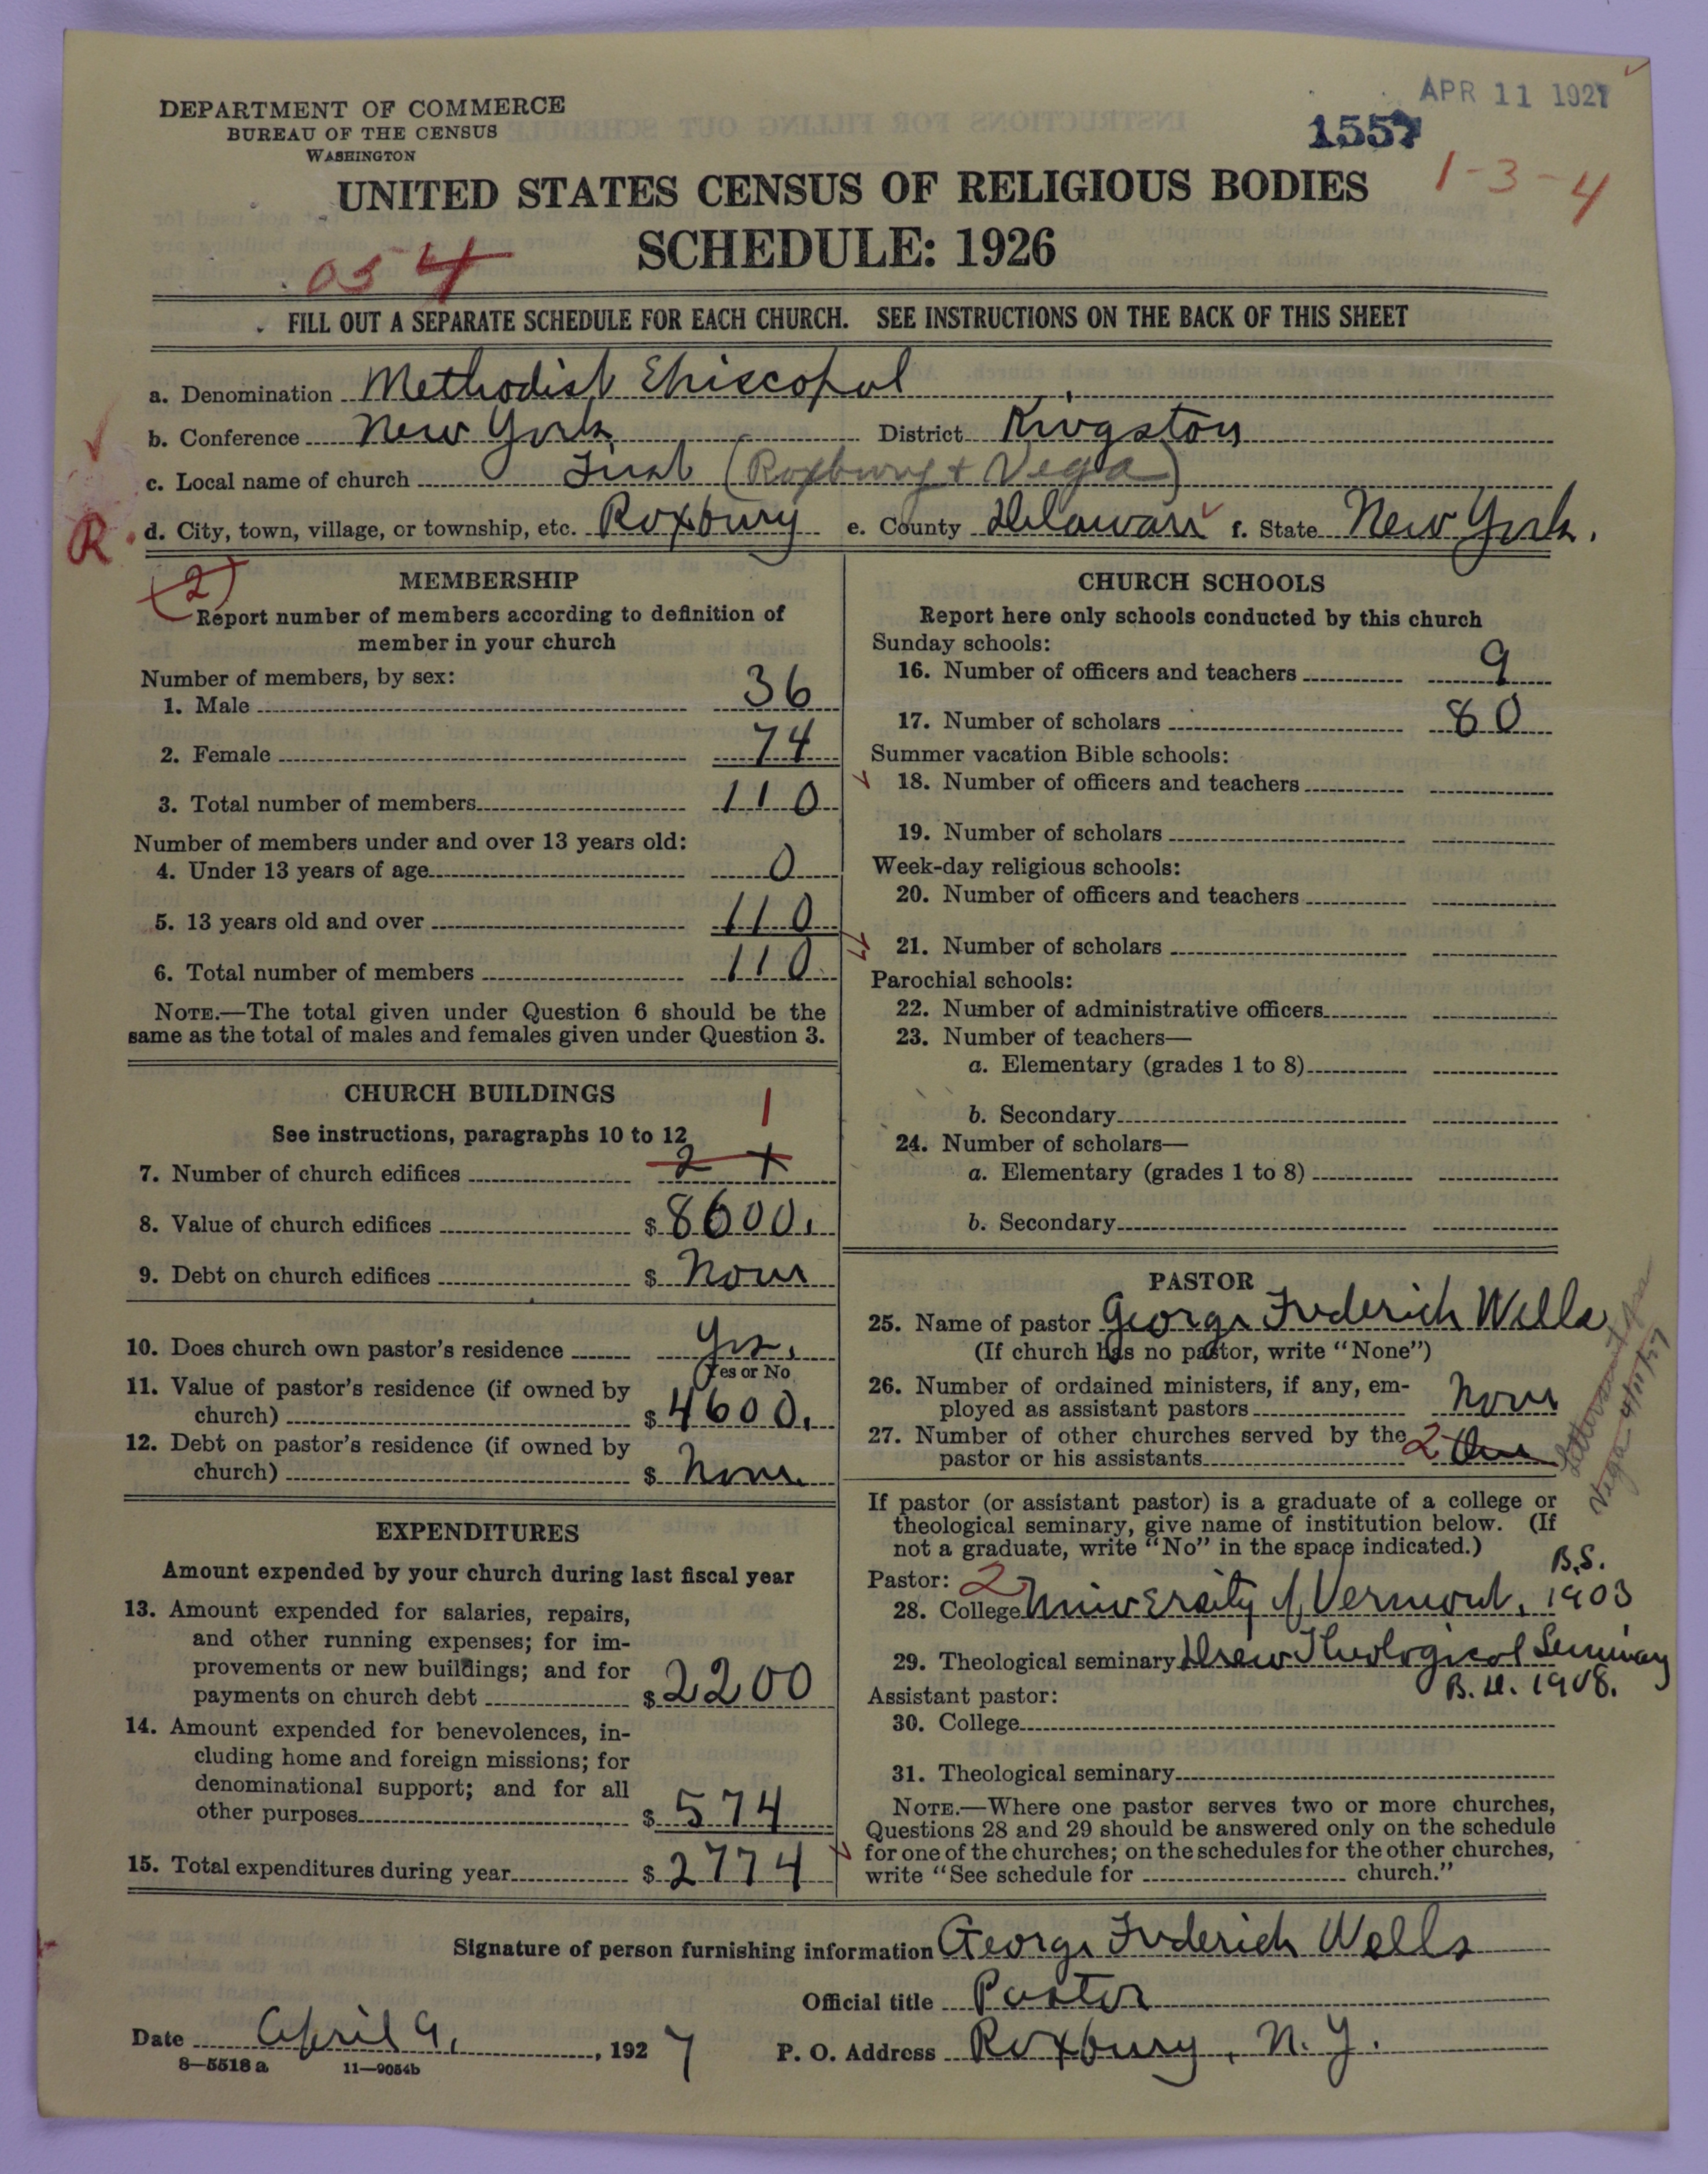 APR 11 1927
DEPARTMENT OF COMMERCE
BUREAU OF THE CENSUS
WASHINGTON
1557
1-3-4
UNITED STATES CENSUS OF RELIGIOUS BODIES
SCHEDULE: 1926
054
FILL OUT A SEPARATE SCHEDULE FOR EACH CHURCH. SEE INSTRUCTIONS ON THE BACK OF THIS SHEET
a. Denomination Methodist Episcopal
b. Conference New York District Kingston
c. Local name of church First (Roxbury + Vega)
R d. City, town, village, or township, etc. Roxbury e. County Delaware f. State New York.
(2)
MEMBERSHIP
Report number of members according to definition of
member in your church
Number of members, by sex:
1. Male 36
2. Female 74
3. Total number of members 110
Number of members under and over 13 years old:
4. Under 13 years of age 0
5. 13 years old and over 110
6. Total number of members 110
NOTE.—The total given under Question 6 should be the
same as the total of males and females given under Question 3.
CHURCH BUILDINGS
See instructions, paragraphs 10 to 12
1
7. Number of church edifices 2
8. Value of church edifices $ 8600.
9. Debt on church edifices $ None
10. Does church own pastor's residence Yes.
Yes or No
11. Value of pastor's residence (if owned by
church) $ 4600.
12. Debt on pastor's residence (if owned by
church) $ None
EXPENDITURES
Amount expended by your church during last fiscal year
13. Amount expended for salaries, repairs,
and other running expenses; for im-
provements or new buildings; and for
payments on church debt $ 2200
14. Amount expended for benevolences, in-
cluding home and foreign missions; for
denominational support; and for all
other purposes $ 574
15. Total expenditures during year $ 2774
CHURCH SCHOOLS
Report here only schools conducted by this church
Sunday schools:
16. Number of officers and teachers 9
17. Number of scholars 80
Summer vacation Bible schools:
18. Number of officers and teachers
19. Number of scholars
Week-day religious schools:
20. Number of officers and teachers
21. Number of scholars
Parochial schools:
22. Number of administrative officers
23. Number of teachers—
a. Elementary (grades 1 to 8)
b. Secondary
24. Number of scholars—
a. Elementary (grades 1 to 8)
b. Secondary
PASTOR
25. Name of pastor George Frederich Wells
(If church has no pastor, write "None")
26. Number of ordained ministers, if any, em-
ployed as assistant pastors None
27. Number of other churches served by the
pastor or his assistants 2
Vega 4/11/27
If pastor (or assistant pastor) is a graduate of a college or
theological seminary, give name of institution below. (If
not a graduate, write "No" in the space indicated.)
Pastor: 2 B.S.
28. College University of Vermont, 1903
29. Theological seminary Drew Theological Seminary
B.D. 1908.
Assistant pastor:
30. College
31. Theological seminary
NOTE.—Where one pastor serves two or more churches,
Questions 28 and 29 should be answered only on the schedule
for one of the churches; on the schedules for the other churches,
write "See schedule for church."
Signature of person furnishing information George Frederich Wells
Official title Pastor
Date April 9, 1927 P. O. Address Roxbury, N.Y.
8—5518 a 11—9054b